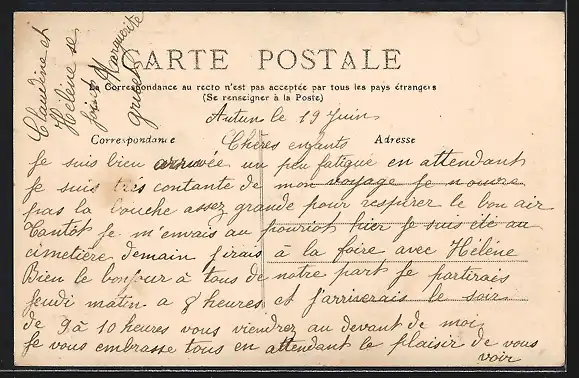 CARTE POSTALE
La Correspondance au recto n'est pas acceptée par tous les pays étrangers
(Se renseigner à la Poste)
Autun le 19 Juin
Correspondance
Adresse
Chères enfants
Je suis bien arruvée un peu fatigue en attendant
Je suis trés contante de mon voyage Je nouvre
pas la bouche assez grande pour respirer le bon air
Tantot Je m'envais au pouriot hier Je suis été au
cimetière demain Jirais à la foire avec Héléne
Bien le bonjour à tous de notre part Je partirais
Jeudi matin a 8 heures et J'arriverais le soir
de 9 à 10 heures vous viendrez au devant de moi
Je vous embrasse tous en attendant le plaisir de vous
voir
Claudine et
Héléne se
joint Marguerite